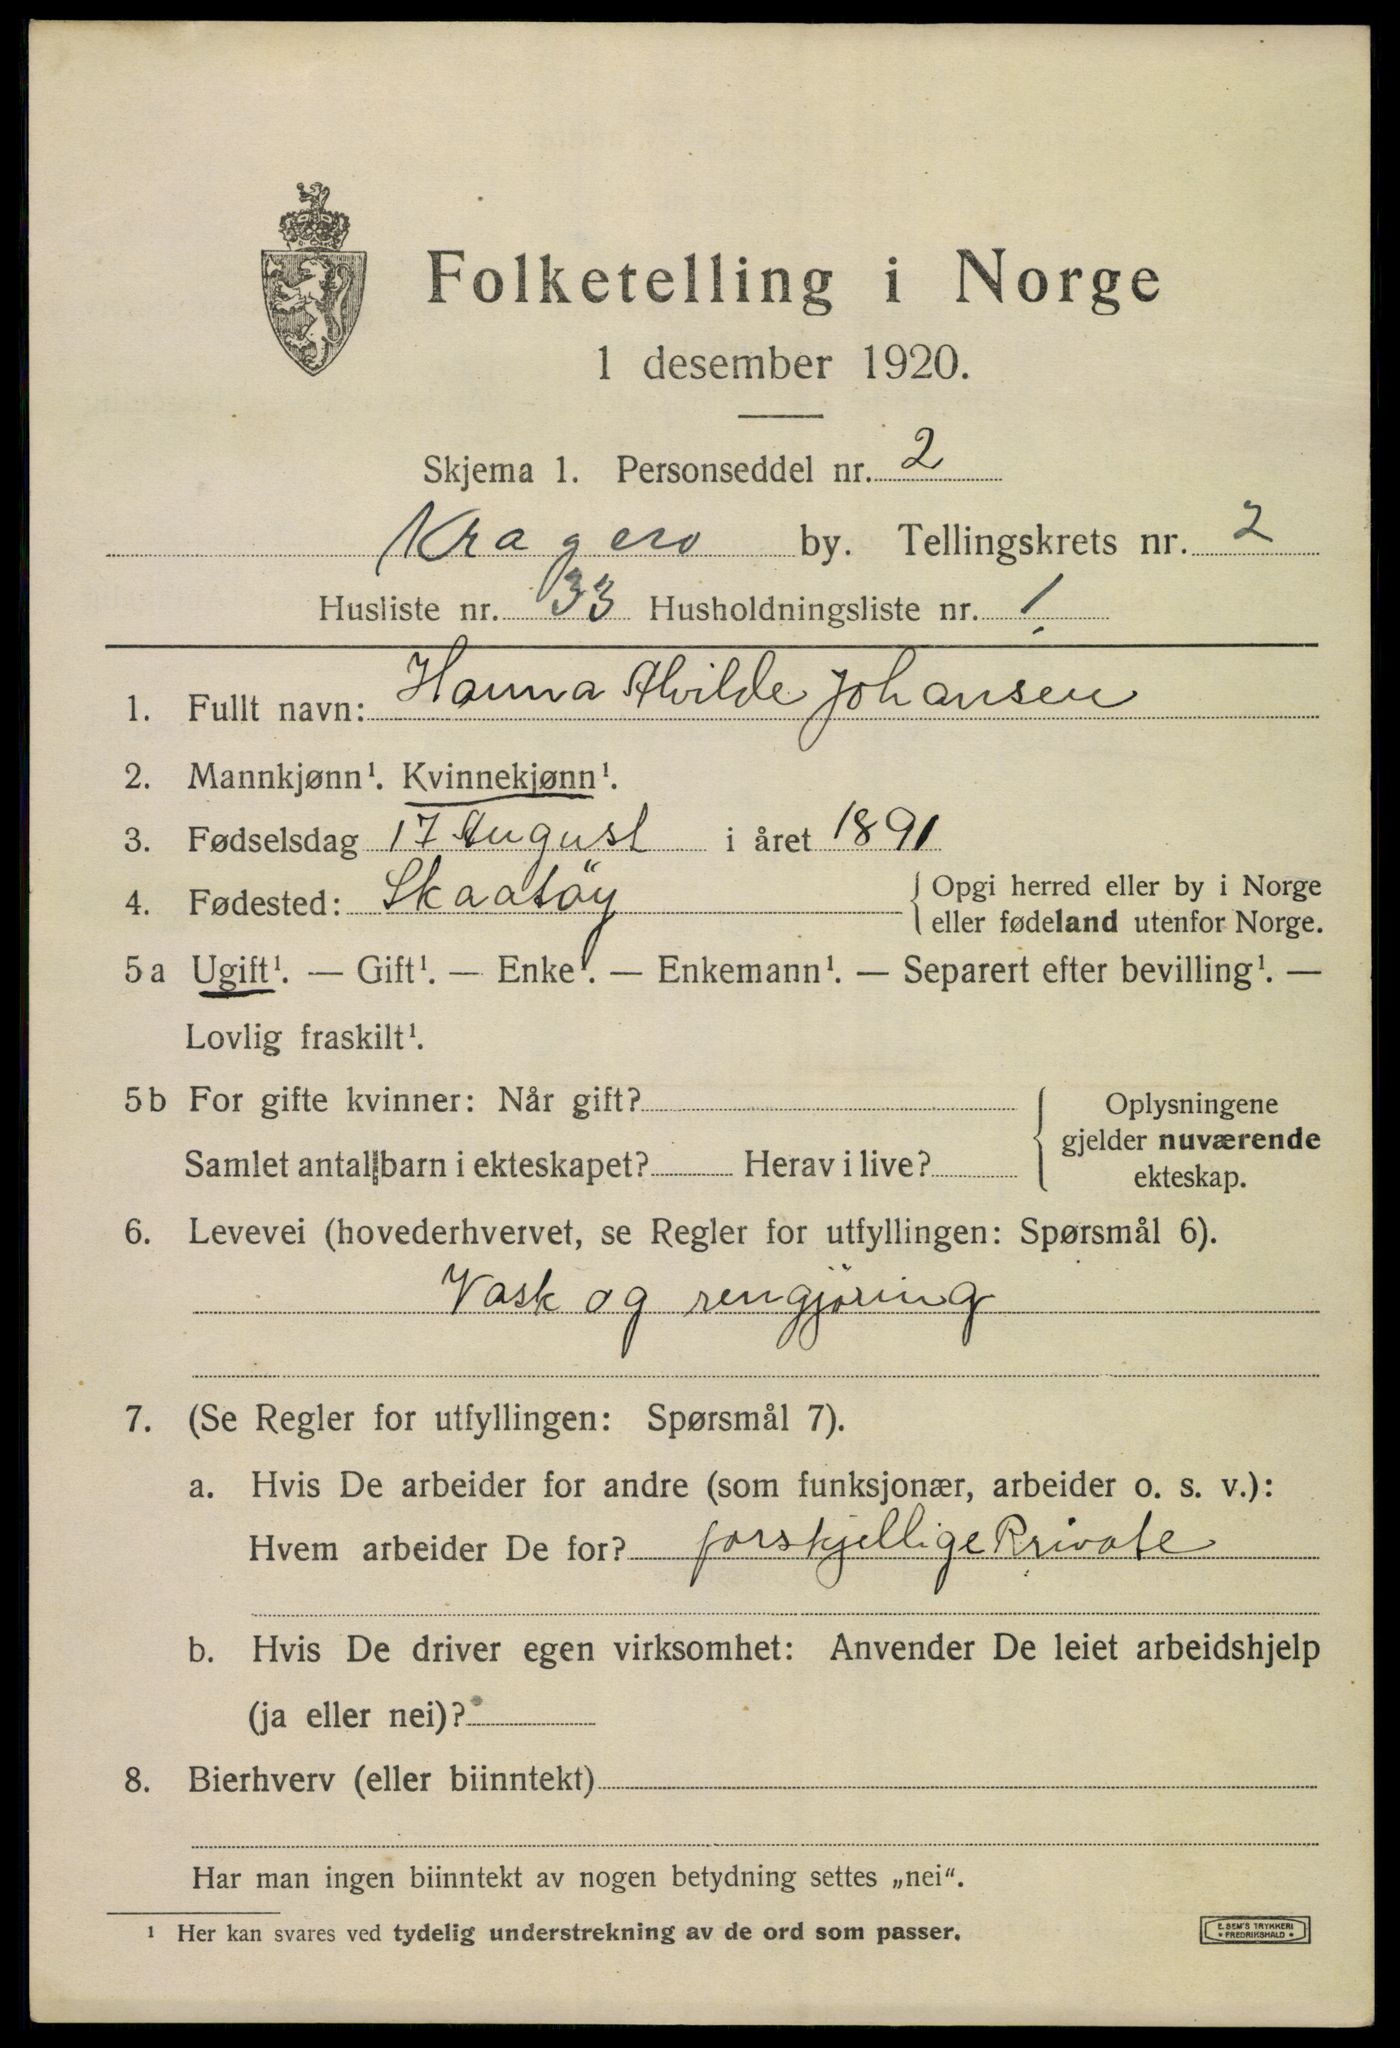 Folketelling i Norge
1 desember 1920.
Skjema 1. Personseddel nr. 2
Kragerø by. Tellingskrets nr. 2
Husliste nr. 33 Husholdningsliste nr. 1
1. Fullt navn: Hanna Alvilde Johansen
2. Mannkjønn¹. Kvinnekjønn¹.
3. Fødselsdag 17 August i året 1891
4. Fødested: Skaatöy { Opgi herred eller by i Norge
eller fødeland utenfor Norge.
5a Ugift¹. — Gift¹. — Enke¹. — Enkemann¹. — Separert efter bevilling¹. —
Lovlig fraskilt¹.
5b For gifte kvinner: Når gift? { Oplysningene
gjelder nuværende
Samlet antal barn i ekteskapet? Herav i live? ekteskap.
6. Levevei (hovederhvervet, se Regler for utfyllingen: Spørsmål 6).
Vask og rengjøring
7. (Se Regler for utfyllingen: Spørsmål 7).
a. Hvis De arbeider for andre (som funksjonær, arbeider o. s. v.):
Hvem arbeider De for? forskjellige Private
b. Hvis De driver egen virksomhet: Anvender De leiet arbeidshjelp
(ja eller nei)?
8. Bierhverv (eller biinntekt)
Har man ingen biinntekt av nogen betydning settes „nei".
¹ Her kan svares ved tydelig understrekning av de ord som passer.
E. SEM'S TRYKKERI
* FREDRIKSHALD *